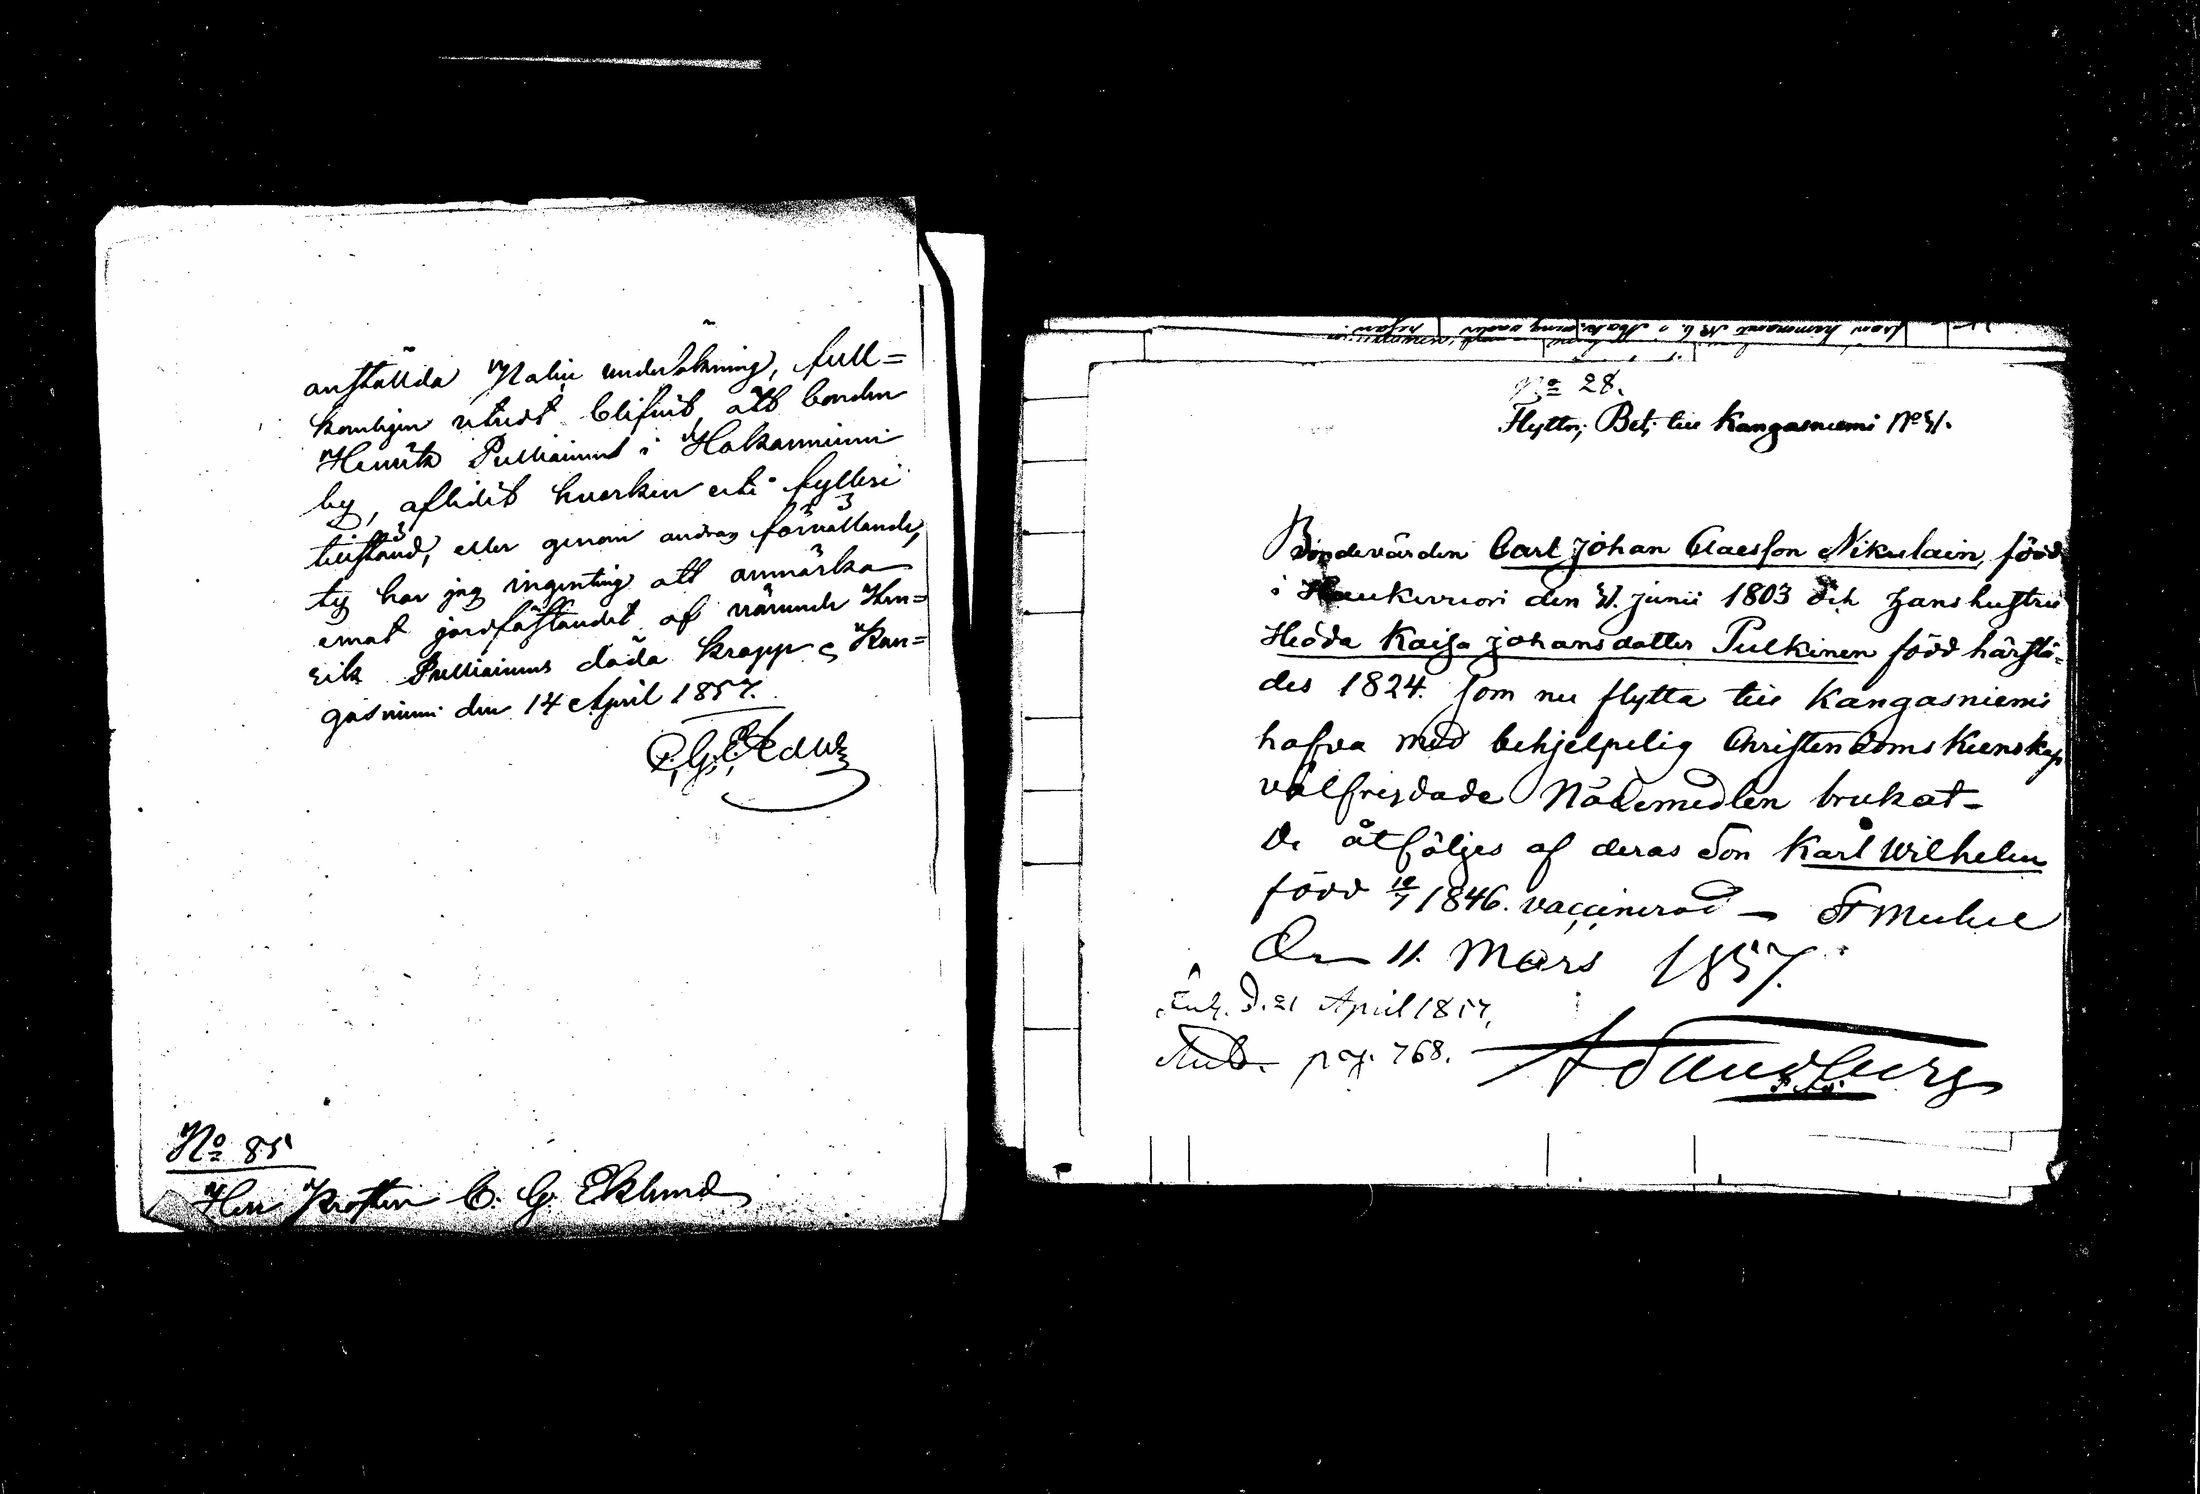 anställda Nalin undersökning, full=
komligen utredt blifvit, att bonden
Henrik Pulliainens i Hokanniemi
by, aflidit hvarken uti fylleri
tillstånd, eller genom andras förvållande,
ty har jag ingenting att anmärka
emot jordfästandet af nämnde Hen=
rik Pulliainens döda kropp. Kan=
gasniemi den 14 April 1857.
No 85
Herr Prosten C. G. Eklund
No 28.
Flyttn; Bet; till Kangasniemi No 31.
Bondevärden Carl Johan Claesson Nikulain, född
i Haukivuori den 31. Junii 1803 och hans hustru
Hedda Kaisa Johansdotter Pulkinen född härstä=
des 1824. som nu flytta till Kangasniemi
hafva med behjelpelig Christendoms Kunskap
välfrejdade Nådemedlen brukat -
De åtföljes af deras Son Karl Wilhelm
född 10/7 1846. vaccinerad - St Michel
Den 11. Mars 1857.
d. 21 April 1857.
pag. 768.